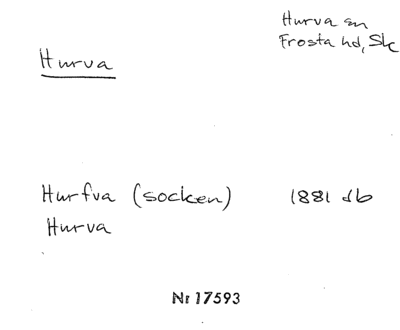 Hurva sn
Frosta hd, Sk
Hurva
Hurfva (socken) 1881 db
Hurva
Nr 17593